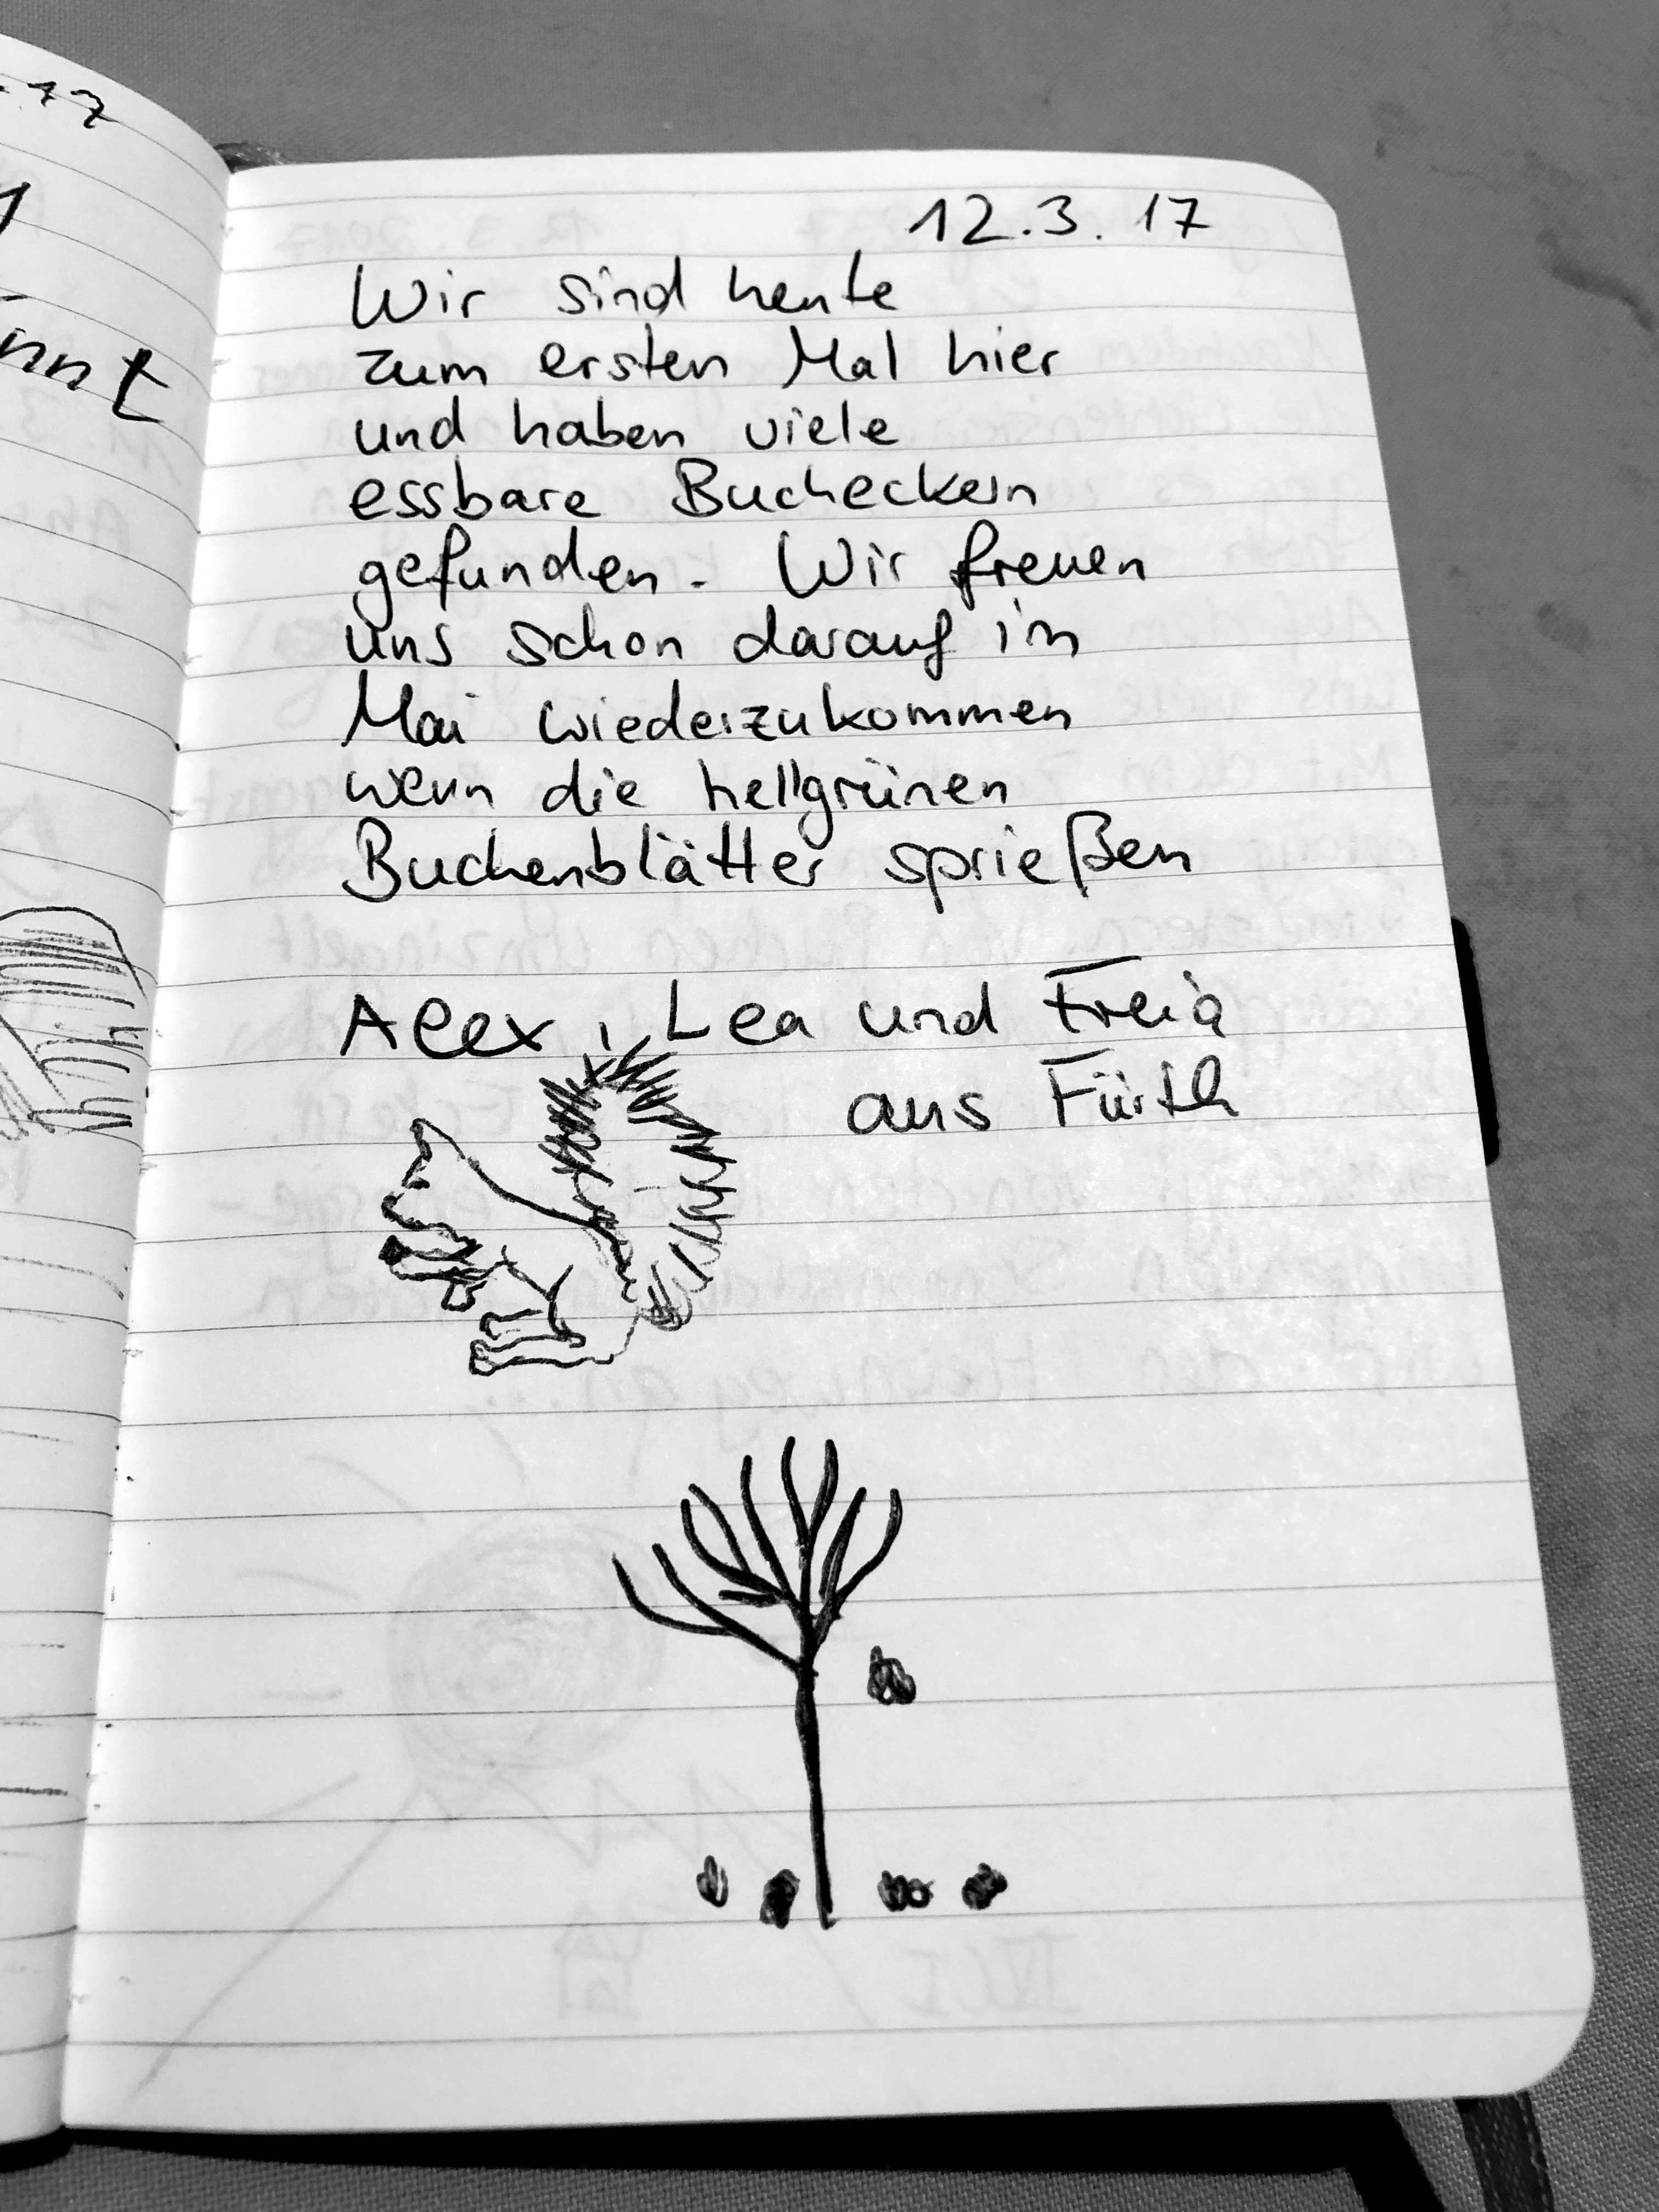 12.3.17
Wir sind heute
zum ersten Mal hier
und haben viele
essbare Bucheckern
gefunden. Wir freuen
uns schon darauf im
Mai wiederzukommen
wenn die hellgrünen
Buchenblätter sprießen
Alex, Lea und Freia
aus Fürth